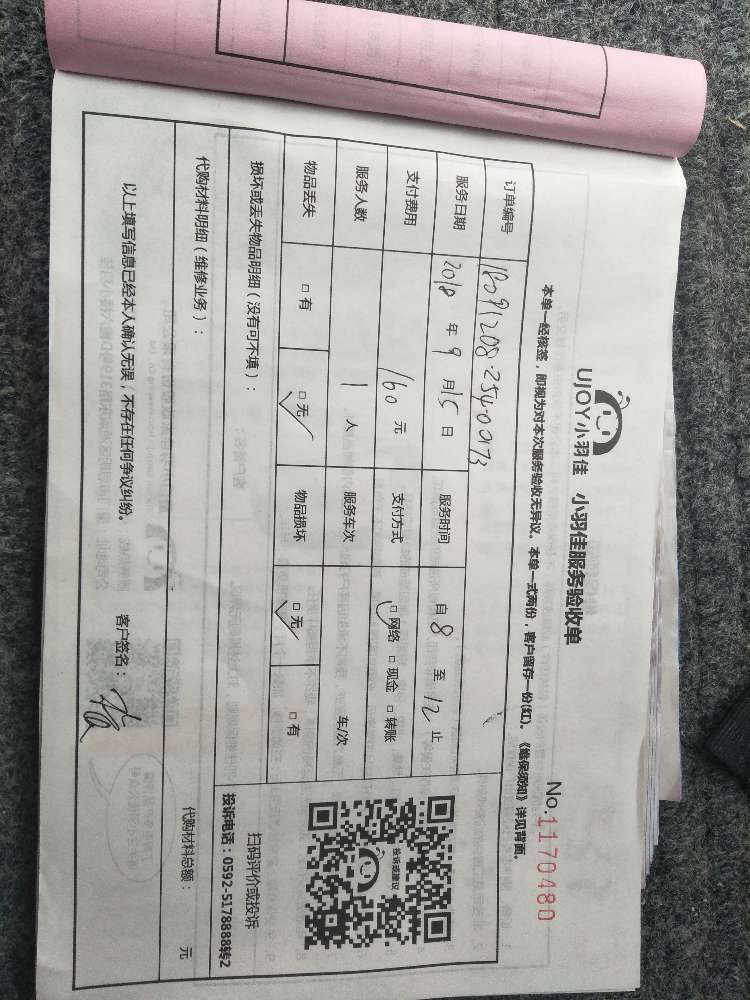 UJOY小羽佳 小羽佳服务验收单
No.1170480
本单一经核签，即视为对本次服务验收无异议。本单一式两份，客户留存一份(红)。《维保须知》详见背面。
订单编号 18091208·254·00173
服务日期 2018 年 9 月 15 日 服务时间 自 8 至 12 止
支付费用 160 元 支付方式 □网络 □现金 □转账
服务人数 1 人 服务车次 车/次
物品丢失 □有 □无 物品损坏 □无 □有
投诉或建议
扫码评价或投诉
投诉电话：0592-5178888转2
损坏或丢失物品明细（没有可不填）：
代购材料明细（维修业务）： 代购材料总额： 元
以上填写信息已经本人确认无误，不存在任何争议纠纷。 客户签名：